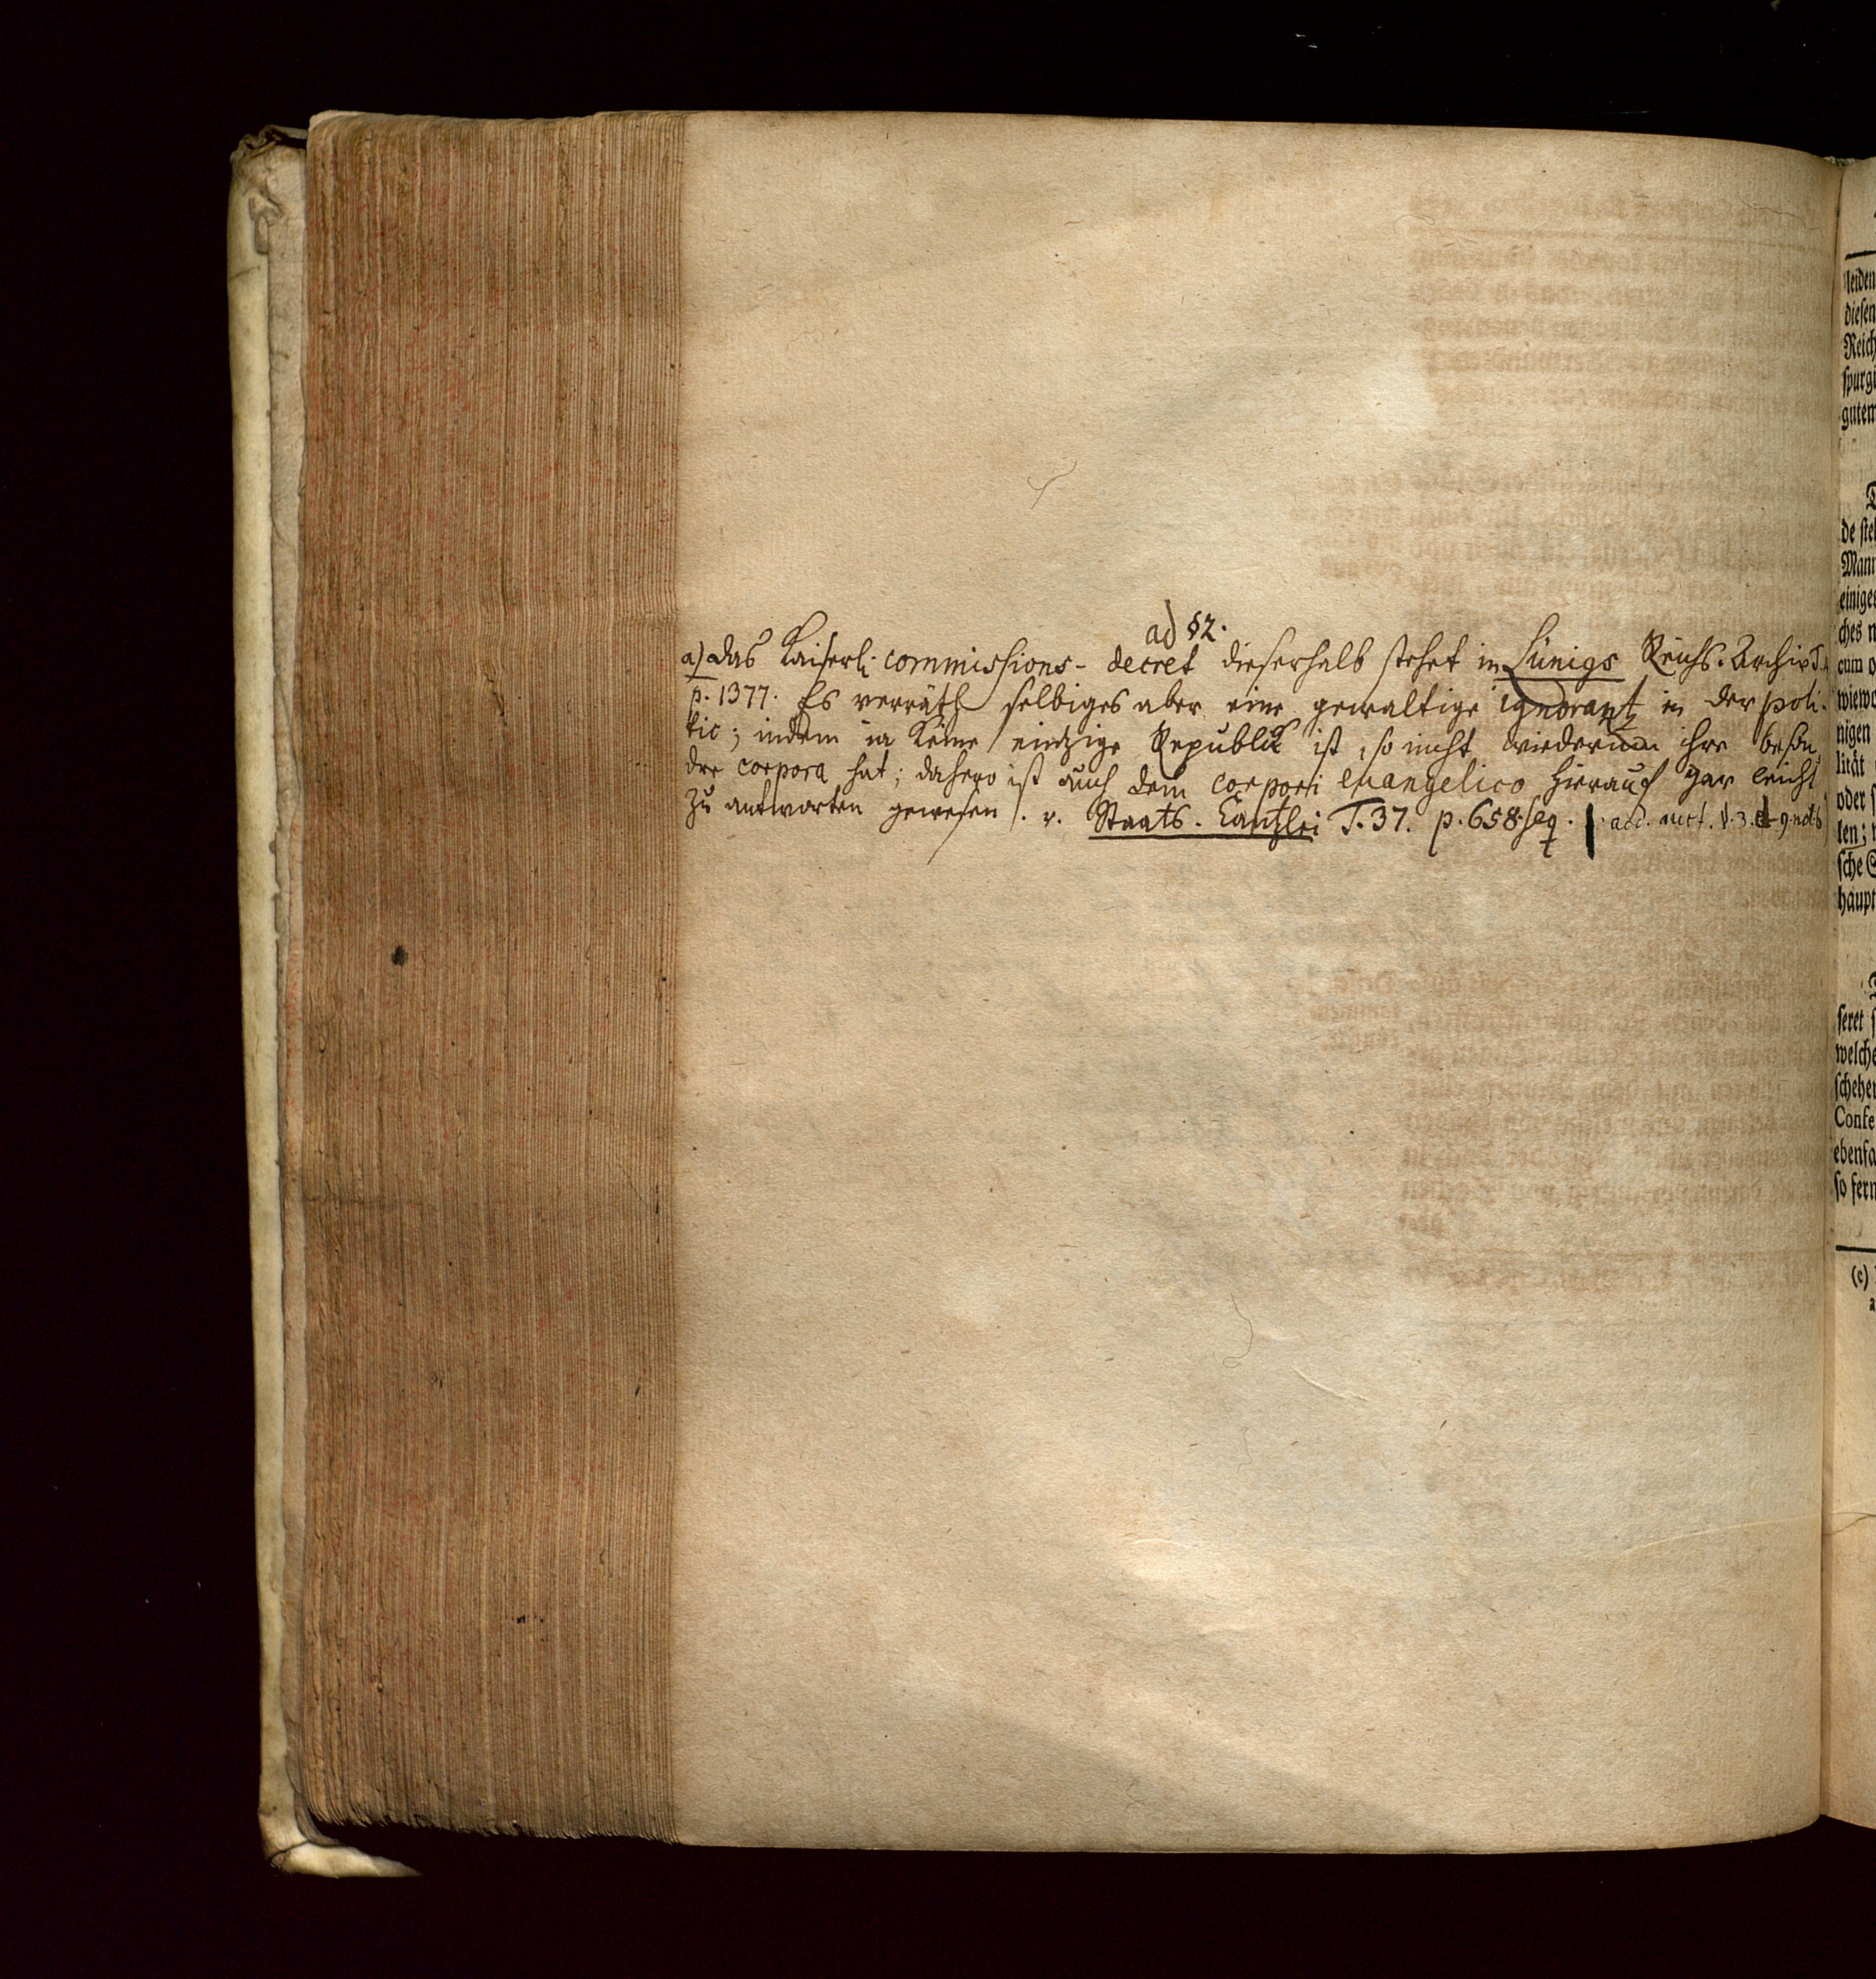 ad §2.
a) das Kaiserl. commissions-decret dieserhalb stehet in Lünigs Reichs-Archiv T.
p. 1377. Es verräth selbiges aber eine gewaltige ignorantz in der poli-
tic; indem ja keine eintzige Republik ist, so nicht wiederum ihre beson
dre corpora hat; dahero ist auch dem corpori evangelico hierauf gar leicht
zu antworten gewesen. v. Staats-Cantzlei T. 37. p. 658. seq. add. auct. §. 3. 9. not. b)
leiden
diesen
Reich
spurgi
gutem
de ste
Mann
einiges
ches n
cum o
wiewo
nigen
lität
oder s
len;
sche S
haupt
seret s
welche
schehen
Confe
ebenfa
so fern
(c)